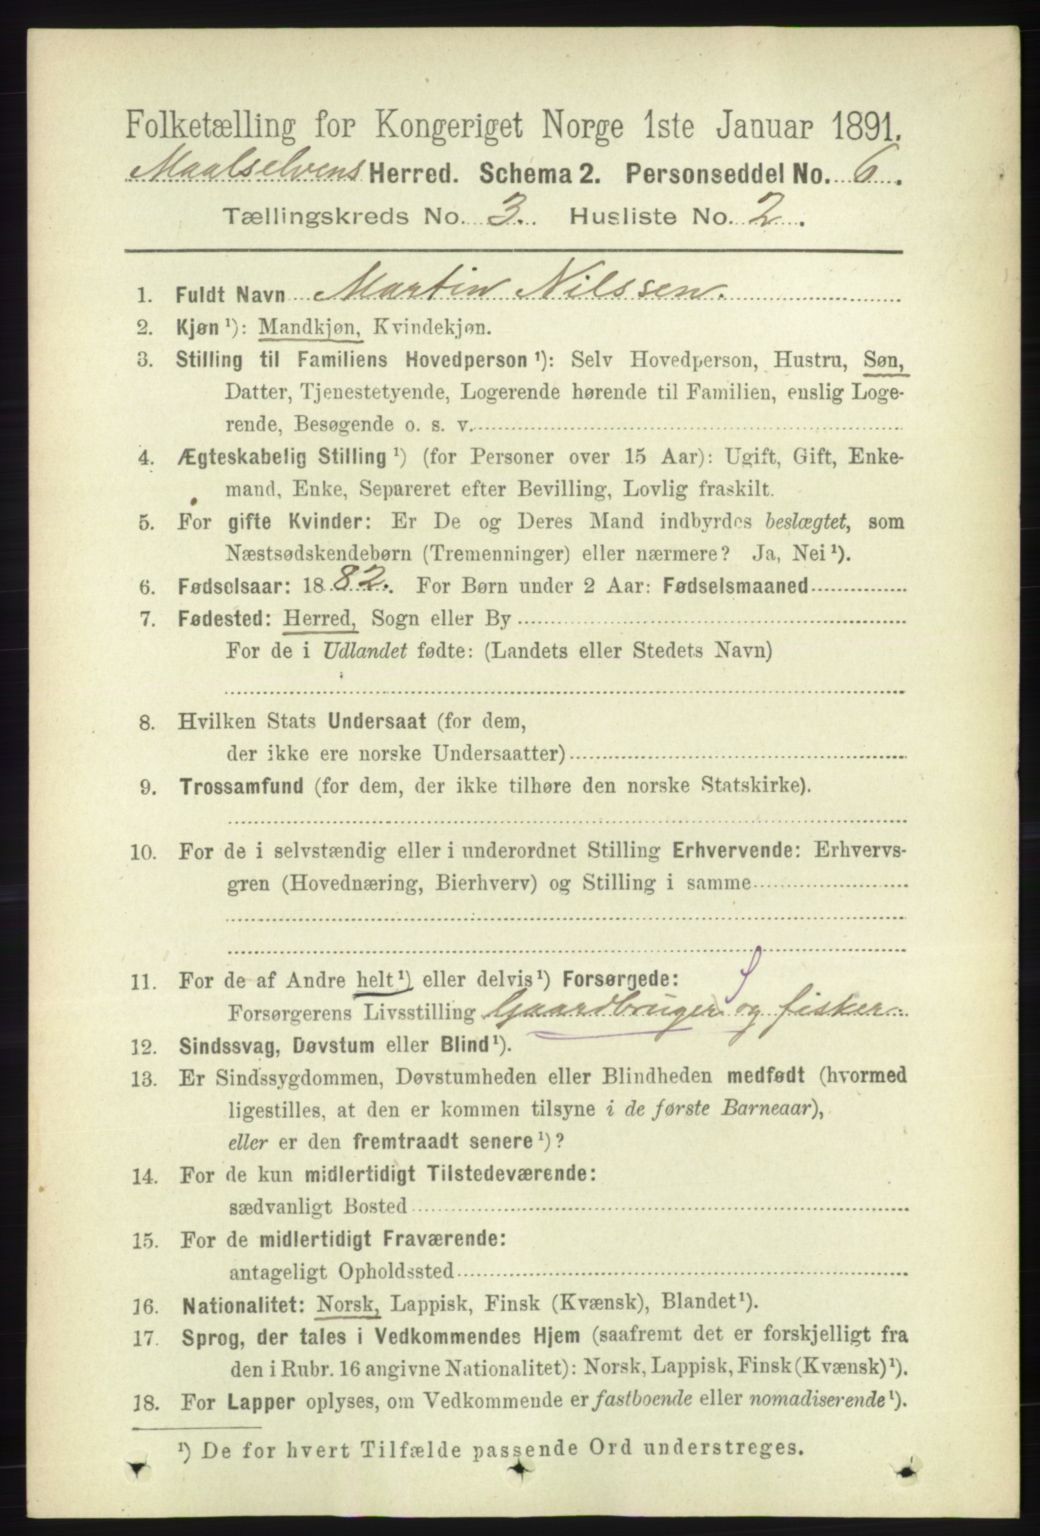 Folketælling for Kongeriget Norge 1ste Januar 1891.
Maalselvens Herred. Schema 2. Personseddel No. 6.
Tællingskreds No. 3. Husliste No. 2.
1. Fuldt Navn Martin Nilssen.
2. Kjøn ¹): Mandkjøn, Kvindekjøn.
3. Stilling til Familiens Hovedperson ¹): Selv Hovedperson, Hustru, Søn,
Datter, Tjenestetyende, Logerende hørende til Familien, enslig Loge-
rende, Besøgende o. s. v.
4. Ægteskabelig Stilling ¹) (for Personer over 15 Aar): Ugift, Gift, Enke-
mand, Enke, Separeret efter Bevilling, Lovlig fraskilt.
5. For gifte Kvinder: Er De og Deres Mand indbyrdes beslægtet, som
Næstsødskendebørn (Tremenninger) eller nærmere? Ja, Nei ¹).
6. Fødselsaar: 1882. For Børn under 2 Aar: Fødselsmaaned
7. Fødested: Herred, Sogn eller By
For de i Udlandet fødte: (Landets eller Stedets Navn)
8. Hvilken Stats Undersaat (for dem,
der ikke ere norske Undersaatter)
9. Trossamfund (for dem, der ikke tilhøre den norske Statskirke).
10. For de i selvstændig eller i underordnet Stilling Erhvervende: Erhvervs-
gren (Hovednæring, Bierhverv) og Stilling i samme
11. For de af Andre helt ¹) eller delvis ¹) Forsørgede:
Forsørgerens Livsstilling Gaardbruger og fisker
12. Sindssvag, Døvstum eller Blind ¹).
13. Er Sindssygdommen, Døvstumheden eller Blindheden medfødt (hvormed
ligestilles, at den er kommen tilsyne i de første Barneaar),
eller er den fremtraadt senere ¹)?
14. For de kun midlertidigt Tilstedeværende:
sædvanligt Bosted
15. For de midlertidigt Fraværende:
antageligt Opholdssted
16. Nationalitet: Norsk, Lappisk, Finsk (Kvænsk), Blandet ¹).
17. Sprog, der tales i Vedkommendes Hjem (saafremt det er forskjelligt fra
den i Rubr. 16 angivne Nationalitet): Norsk, Lappisk, Finsk (Kvænsk) ¹).
18. For Lapper oplyses, om Vedkommende er fastboende eller nomadiserende ¹).
¹) De for hvert Tilfælde passende Ord understreges.